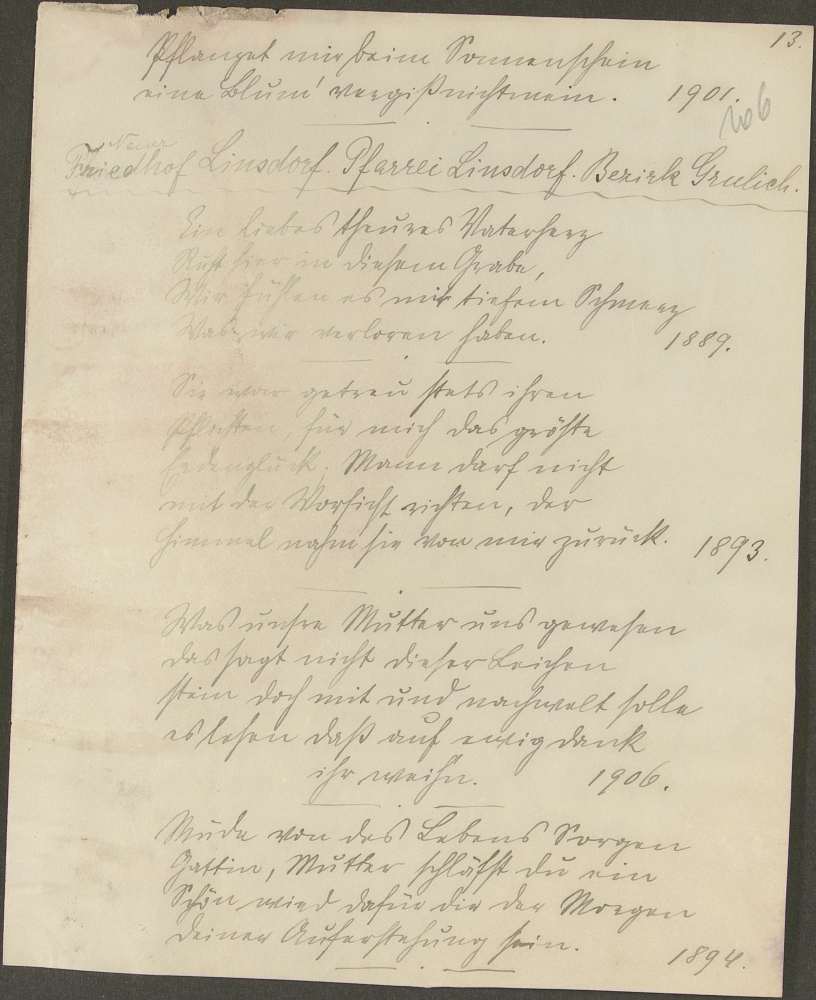 13.
Pflanzet mir beim Sonnenschein
eine Blum' vergißnichtmein. 1901.
Neuer
Friedhof Linsdorf. Pfarrei Linsdorf. Bezirk Grulich.
Ein liebes theures Vaterherz
Ruht hier in diesem Grabe,
Wir fühlen es mit tiefem Schmerz
Was wir verloren haben. 1889.
Sie war getreu stets ihren
Pflichten, für mich das größte
Erdenglück. Mann darf nicht
mit der Vorsicht richten, der
Himmel nahm sie von mir zurück. 1893.
Was unsre Mutter uns gewesen
das sagt nicht dieser Leichen
stein doch mit und nachwelt solle
es lesen daß auf ewig dank
ihr weih'n. 1906.
Müde von des Lebens Sorgen
Gattin, Mutter schläfst du ein
Schön wird dafür dir der Morgen
deiner Auferstehung sein. 1894.